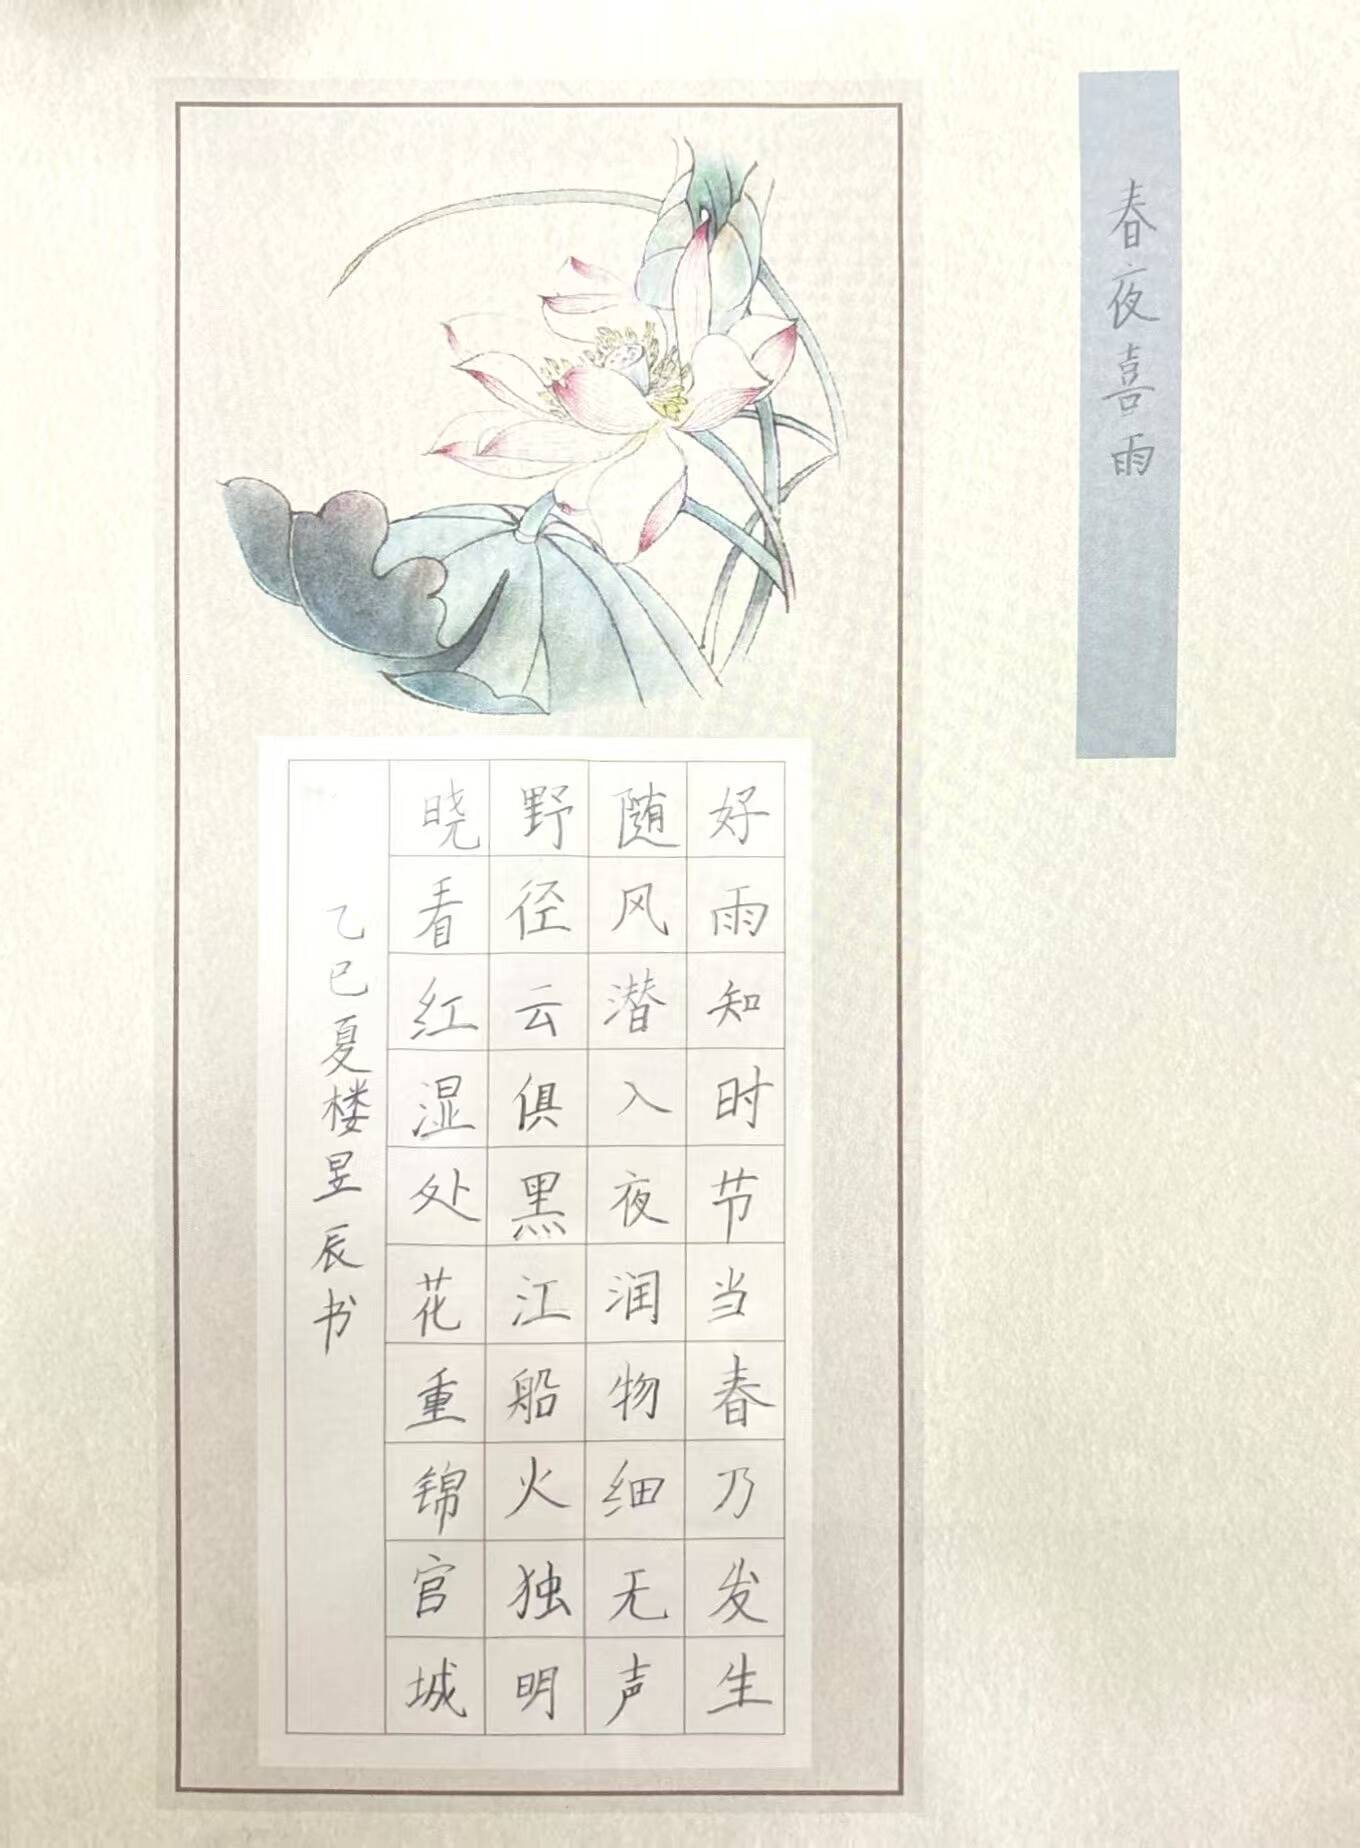 春夜喜雨
好雨知时节当春乃发生
随风潜入夜润物细无声
野径云俱黑江船火独明
晓看红湿处花重锦官城
乙巳夏楼昱辰书